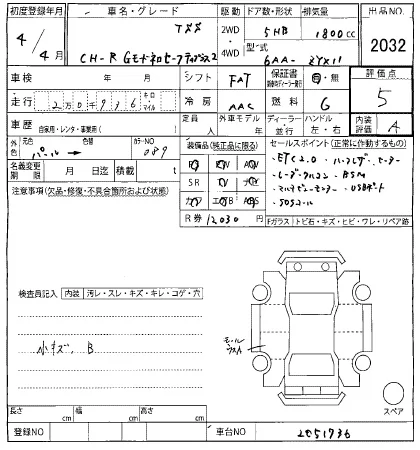 初度登録年月 車名・グレード 駆動 ドア数・形状 排気量 出品NO
4/4月 トヨタ 2WD 5HB 1800cc 2032
C H-R Gモードネロセーフティプラス2 4WD 型式 6AA-ZYX11
車検 年 月 シフト FAT 保証書 有・無 評価点
走行 2万0千916 キロ マイル 冷房 AAC 燃料 G 5
車歴 自家用・レンタ・事業用( ) 定員 人 外車モデル 年 ディーラー 並行 ハンドル 左・右 内装評価 A
外色 元色 パール 色替 カラーNO 089 装備品(純正品に限る) セールスポイント(正常に作動するもの)
名義変更期限 月 日 積載 t SR AW
・ETC2.0 ・ハーフレザーヒーター
・レーダクルコン ・BSM
・マルチビューモニター ・USBポート
・SOSコール
注意事項(欠品・修復・不具合箇所および状態) ナビ エアB ABS
R券 12030円 Fガラス トビ石・キズ・ヒビ・ワレ・リペア跡
検査員記入 内装 汚レ・スレ・キズ・キレ・コゲ・穴
小キズ、B
モール
ウスト
スペア
長さ cm 幅 cm 高さ cm
登録NO 車台NO 2051736